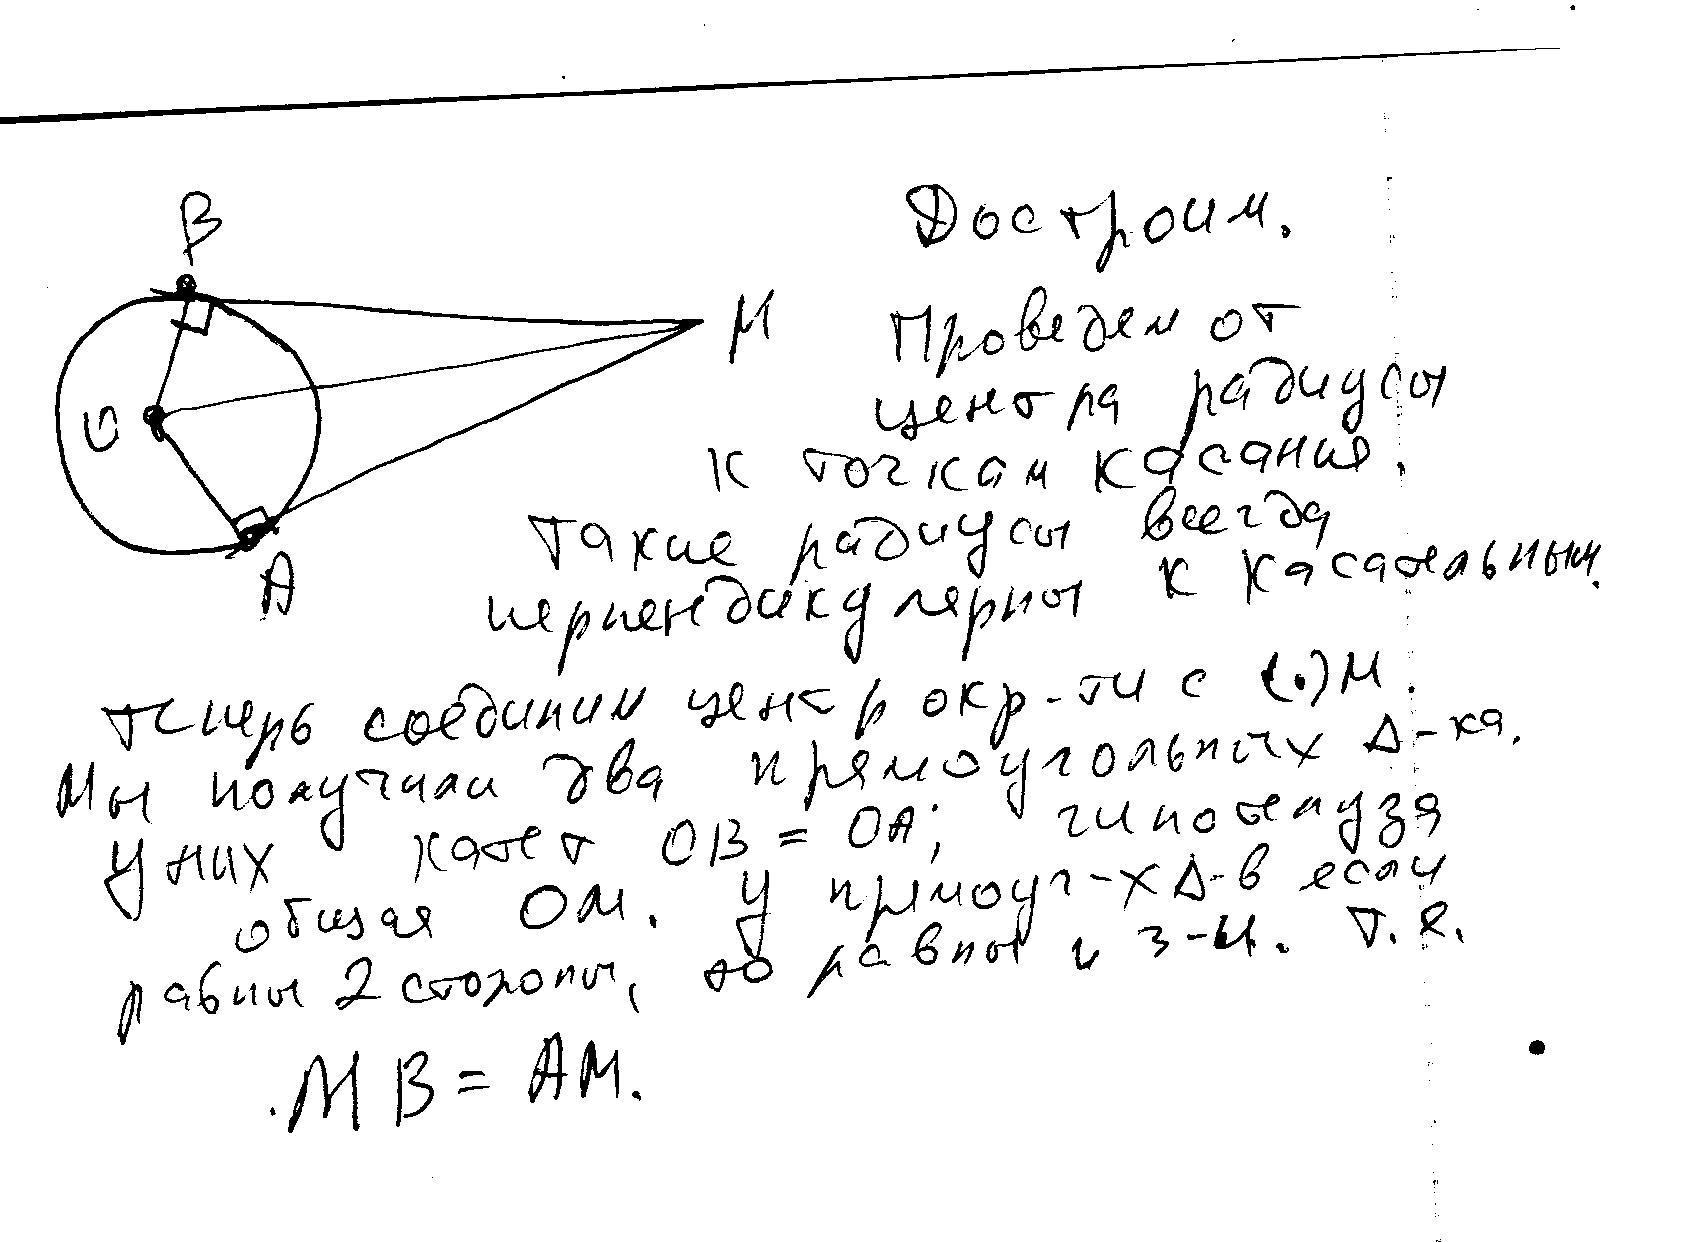 B
Достроим.
M
Проведем от
центра радиусы
O
к точкам касания.
Такие радиусы всегда
A
перпендикулярны к касательным.
Теперь соединим центр окр-ти с (.)М.
Мы получили два прямоугольных Δ-ка.
У них катет OB = OA; гипотенуза
общая OM. У прямоуг-х Δ-в если
равны 2 стороны, то равны и 3-и. Т.е.
MB = AM.